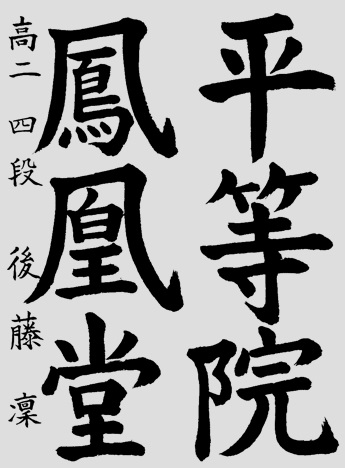 平等院
鳳凰堂
高二 四段 後藤 凜